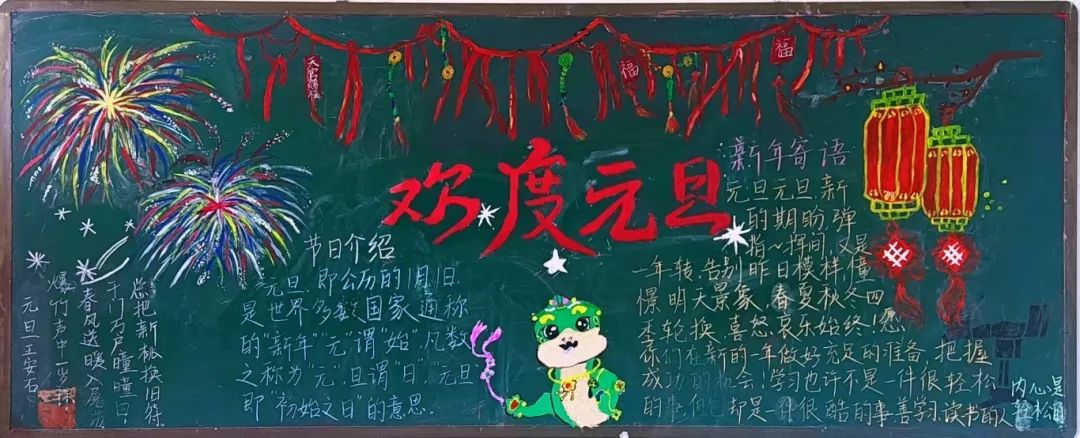 天官赐福
福
福
欢度元旦
新年寄语
元旦元旦,新
的期盼,弹
指一挥间,又是
一年转,告别昨日模样,憧
憬明天景象,春夏秋冬四
季轮换,喜怒哀乐始终!愿
你们在新的一年做好充足的准备,把握
成功的机会!学习也许不是一件很轻松
的事,但它却是一件很酷的事,善学习、读书的人
内心是
轻松
节日介绍
元旦,即公历的1月1日,
是世界多数国家通称
的“新年”“元”谓“始”,凡数
之称为“元”,旦谓“日”,“元旦”
即“初始之日”的意思。
元旦 王安石
爆竹声中一岁除,
春风送暖入屠苏
千门万户曈曈日,
总把新桃换旧符。